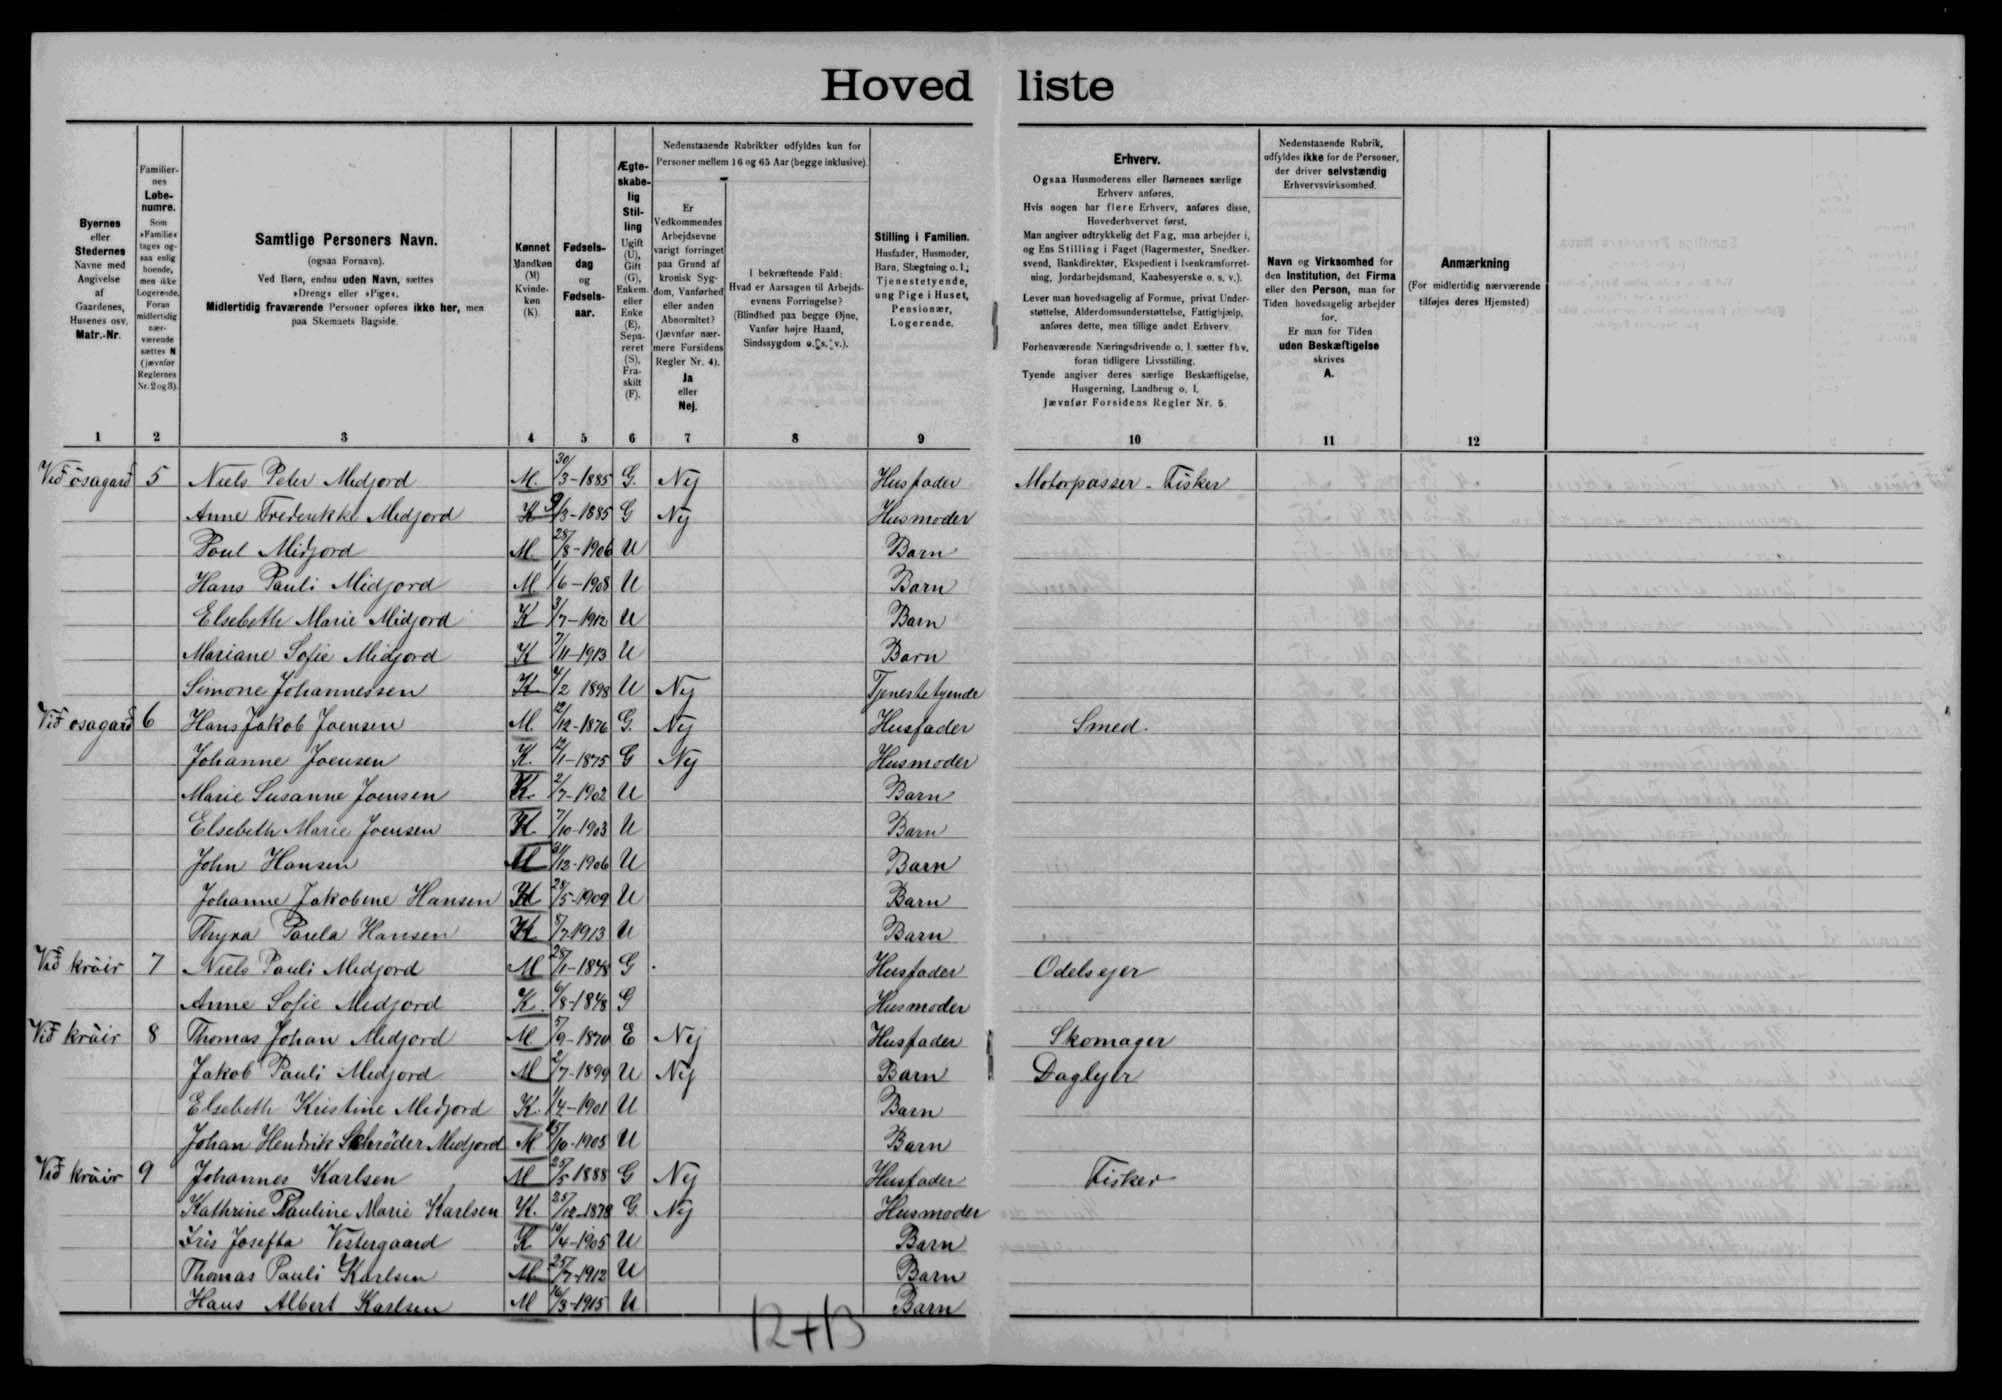 Hoved liste
Byernes
eller
Stedernes
Navne med
Angivelse
af
Gaardenes,
Husenes osv.
Matr.-Nr.
Familier-
nes
Løbe-
numre.
Som
»Familie«
tages og-
saa enlig
boende,
men ikke
Logerende.
Foran
midlertidig
nær-
værende
sættes N
(jævnfør
Reglernes
Nr. 2 og 3).
Samtlige Personers Navn.
(ogsaa Fornavn).
Ved Børn, endnu uden Navn, sættes
»Dreng« eller »Pige«.
Midlertidig fraværende Personer opføres ikke her, men
paa Skemaets Bagside.
Kønnet
Mandkøn
(M)
Kvinde-
køn
(K).
Fødsels-
dag
og
Fødsels-
aar.
Ægte-
skabe-
lig
Stil-
ling
Ugift
(U),
Gift
(G),
Enkem.
eller
Enke
(E),
Sepa-
reret
(S),
Fra-
skilt
(F).
Nedenstaaende Rubrikker udfyldes kun for
Personer mellem 16 og 65 Aar (begge inklusive).
Er
Vedkommendes
Arbejdsevne
varigt forringet
paa Grund af
kronisk Syg-
dom, Vanførhed
eller anden
Abnormitet?
(Jævnfør nær-
mere Forsidens
Regler Nr. 4).
Ja
eller
Nej.
I bekræftende Fald:
Hvad er Aarsagen til Arbejds-
evnens Forringelse?
(Blindhed paa begge Øjne,
Vanfør højre Haand,
Sindssygdom o. s. v.).
Stilling i Familien.
Husfader, Husmoder,
Barn, Slægtning o. l.;
Tjenestetyende,
ung Pige i Huset,
Pensionær,
Logerende.
Erhverv.
Ogsaa Husmoderens eller Børnenes særlige
Erhverv anføres.
Hvis nogen har flere Erhverv, anføres disse,
Hovederhvervet først.
Man angiver udtrykkelig det Fag, man arbejder i,
og Ens Stilling i Faget (Bagermester, Snedker-
svend, Bankdirektør, Ekspedient i Isenkramforret-
ning, Jordarbejdsmand, Kaabesyerske o. s. v.).
Lever man hovedsagelig af Formue, privat Under-
støttelse, Alderdomsunderstøttelse, Fattighjælp,
anføres dette, men tillige andet Erhverv.
Forhenværende Næringsdrivende o. l. sætter fhv.
foran tidligere Livsstilling.
Tyende angiver deres særlige Beskæftigelse,
Husgerning, Landbrug o. l.
Jævnfør Forsidens Regler Nr. 5.
Nedenstaaende Rubrik,
udfyldes ikke for de Personer,
der driver selvstændig
Erhvervsvirksomhed.
Navn og Virksomhed for
den Institution, det Firma
eller den Person, man for
Tiden hovedsagelig arbejder
for.
Er man for Tiden
uden Beskæftigelse
skrives
A.
Anmærkning
(For midlertidig nærværende
tilføjes deres Hjemsted)
1 2 3 4 5 6 7 8 9 10 11 12
Við ósagarð 5 Niels Peter Midjord M. 30/3-1885 G. Nej Husfader Motorpasser - Fisker
Anne Frederikke Midjord K 9/3-1885 G Nej Husmoder
Poul Midjord M. 28/8-1906 U Barn
Hans Pauli Midjord M 1/6-1908 U Barn
Elsebeth Marie Midjord K 3/7-1912 U Barn
Mariane Sofie Midjord K 7/11-1913 U Barn
Simone Johannessen K 4/2 1898 U Nej Tjenestetyende
Við ósagarð 6 Hans Jakob Joensen M. 12/12-1876 G. Nej Husfader Smed.
Johanne Joensen K. 12/1-1875 G Nej Husmoder
Marie Susanne Joensen K. 2/7-1902 U Barn
Elsebeth Marie Joensen K 7/10-1903 U Barn
John Hansen M /12-1906 U Barn
Johanne Jakobine Hansen K 28/5-1909 U Barn
Thyra Paula Hansen K 8/7-1913 U Barn
Við kráir 7 Niels Pauli Midjord M 28/1-1848 G Husfader Odelsejer
Anne Sofie Midjord K. 6/8-1848 G Husmoder
Við kráir 8 Thomas Johan Midjord M 5/9-1870 E Nej Husfader Skomager
Jakob Pauli Midjord M 2/7-1899 U Nej Barn Daglejer
Elsebeth Kristine Midjord K. 1/4-1901 U Barn
Johan Hendrik Schrøder Midjord M 15/10-1905 U Barn
Við kráir 9 Johannes Karlsen M 25/5 1888 G Nej Husfader Fisker
Kathrine Pauline Marie Karlsen K. 25/12-1878 G. Nej Husmoder
Iris Josefta Vestergaard K 10/4-1905 U Barn
Thomas Pauli Karlsen M 25/7-1912 U Barn
Hans Albert Karlsen M 16/3-1915 U Barn
12+13